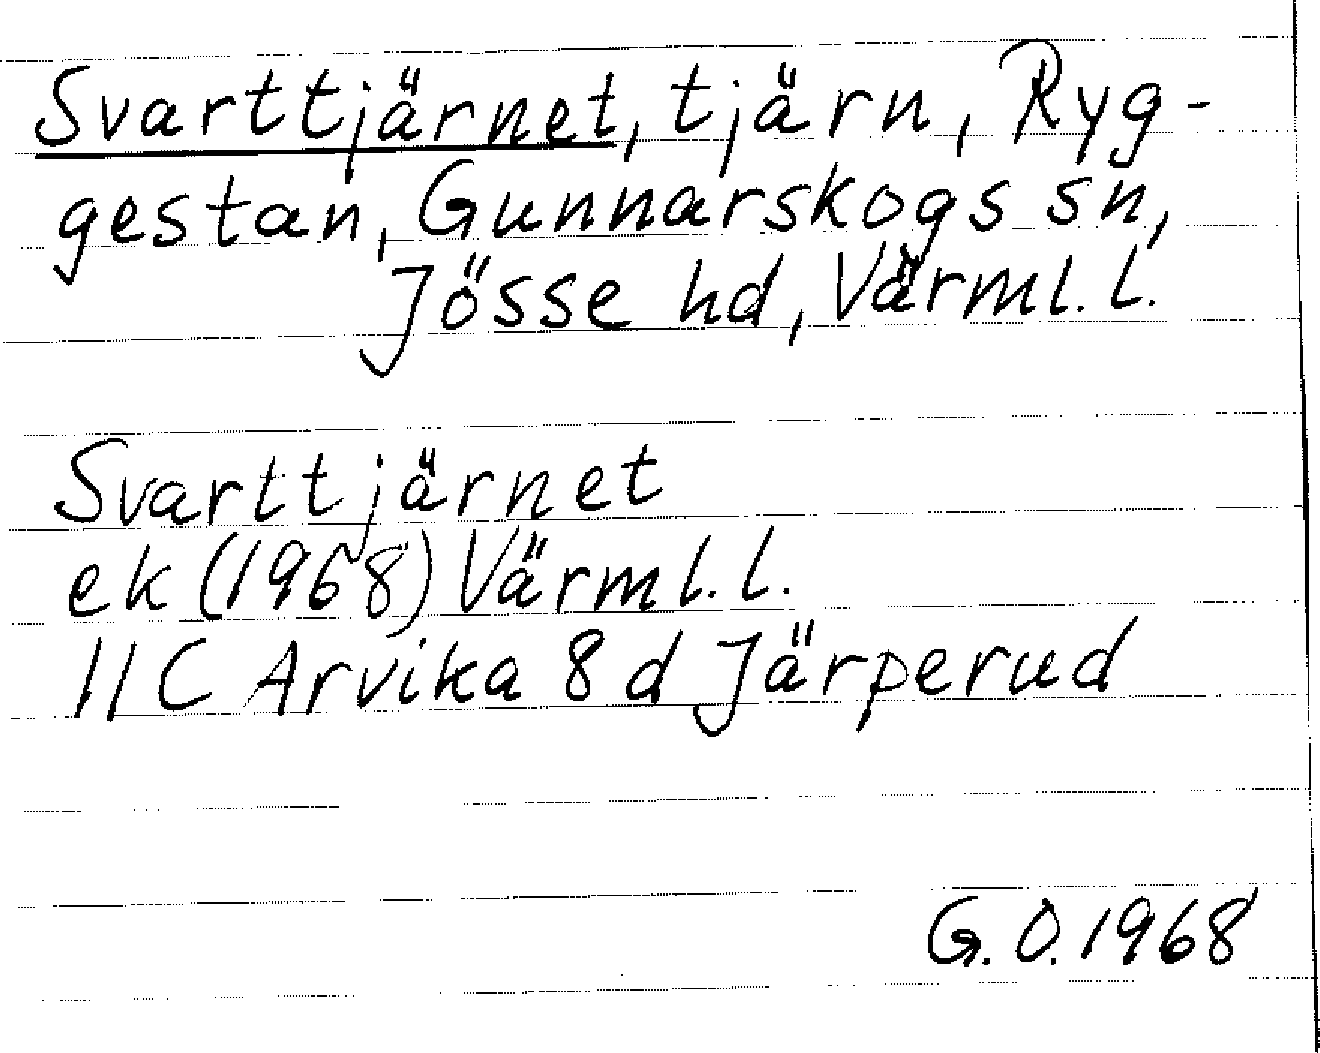 Svarttjärnet, tjärn, Ryg-
gestan, Gunnarskogs sn,
Jösse hd, Värml. l.
Svarttjärnet
ek (1968) Värml. l.
11C Arvika 8d Järperud
G. O. 1968